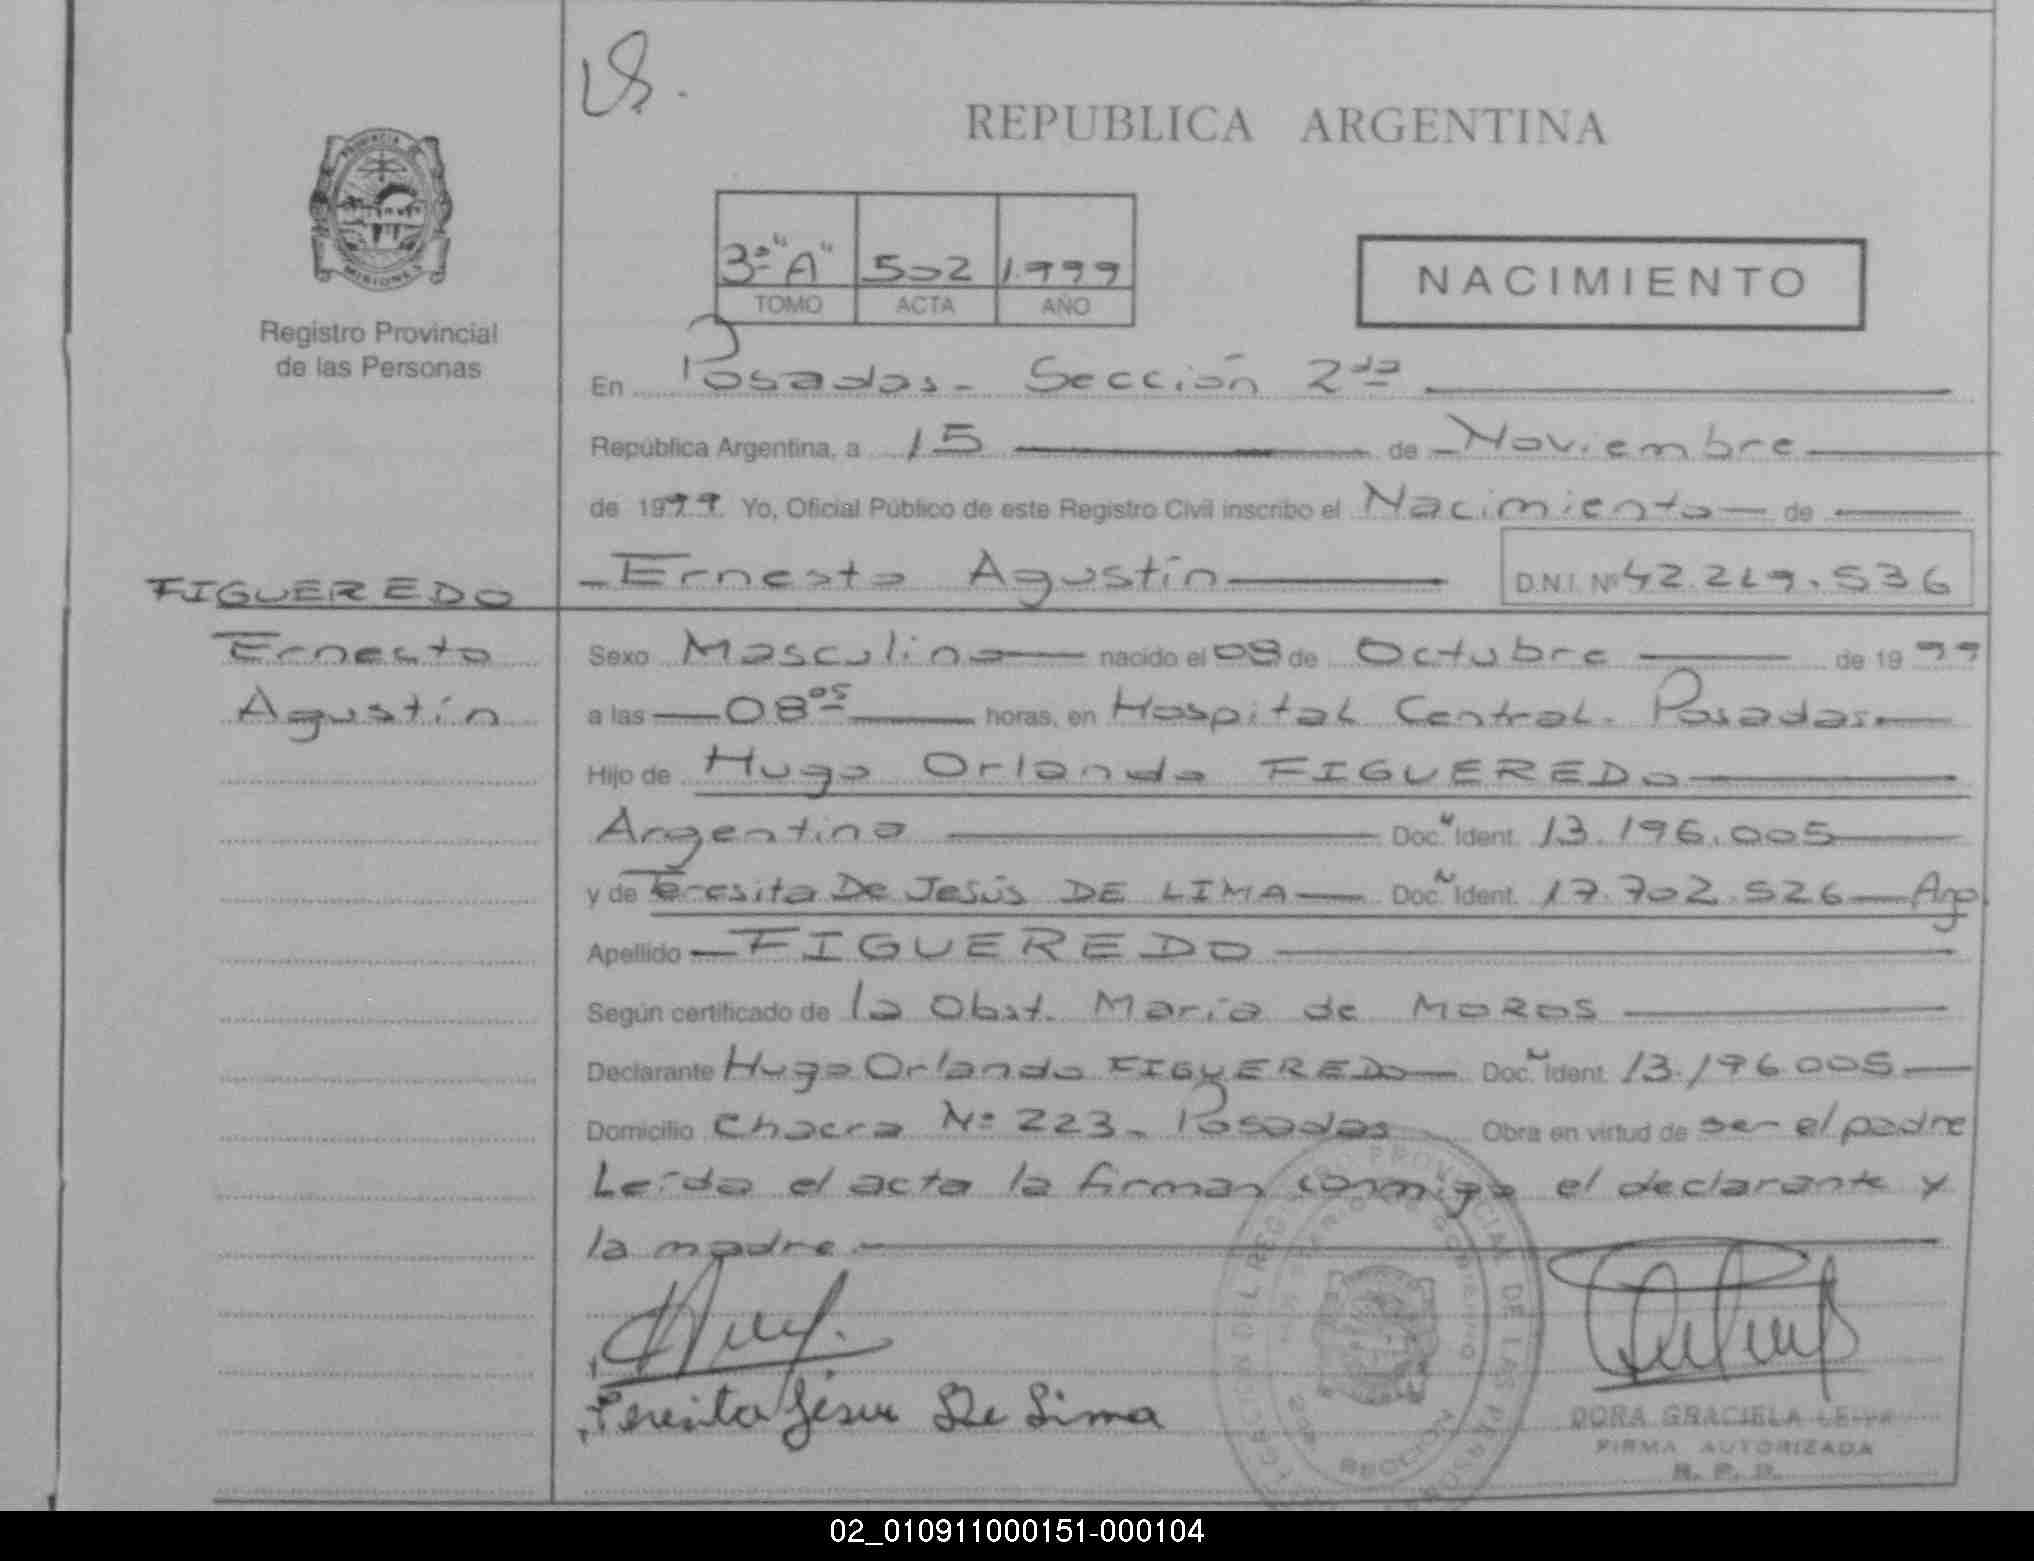 VS.
REPUBLICA ARGENTINA
PROVINCIA DE
MISIONES
Registro Provincial
de las Personas
3ª "A" 502 1.999
TOMO ACTA AÑO
NACIMIENTO
En Posadas - Sección 2da
República Argentina, a 15 de Noviembre
de 1999 Yo, Oficial Público de este Registro Civil inscribo el Nacimiento de
FIGUEREDO
Ernesto
Agustín
Ernesto Agustín D.N.I. Nº 42.219.536
Sexo Masculino nacido el 08 de Octubre de 1999
a las 08 05 horas, en Hospital Central. Posadas
Hijo de Hugo Orlando FIGUEREDO
Argentino Doc. Ident. 13.196.005
y de Teresita De Jesús DE LIMA Doc. Ident. 17.702.526 Arg
Apellido FIGUEREDO
Según certificado de la Obst. María de MOROS
Declarante Hugo Orlando FIGUEREDO Doc. Ident. 13.196.005
Domicilio Chacra Nº 223 - Posadas Obra en virtud de ser el padre
Leída el acta la firman conmigo el declarante y
la madre.
Teresita Jesus De Lima
DORA GRACIELA LEIVA
FIRMA AUTORIZADA
R. P. P.
02_010911000151-000104